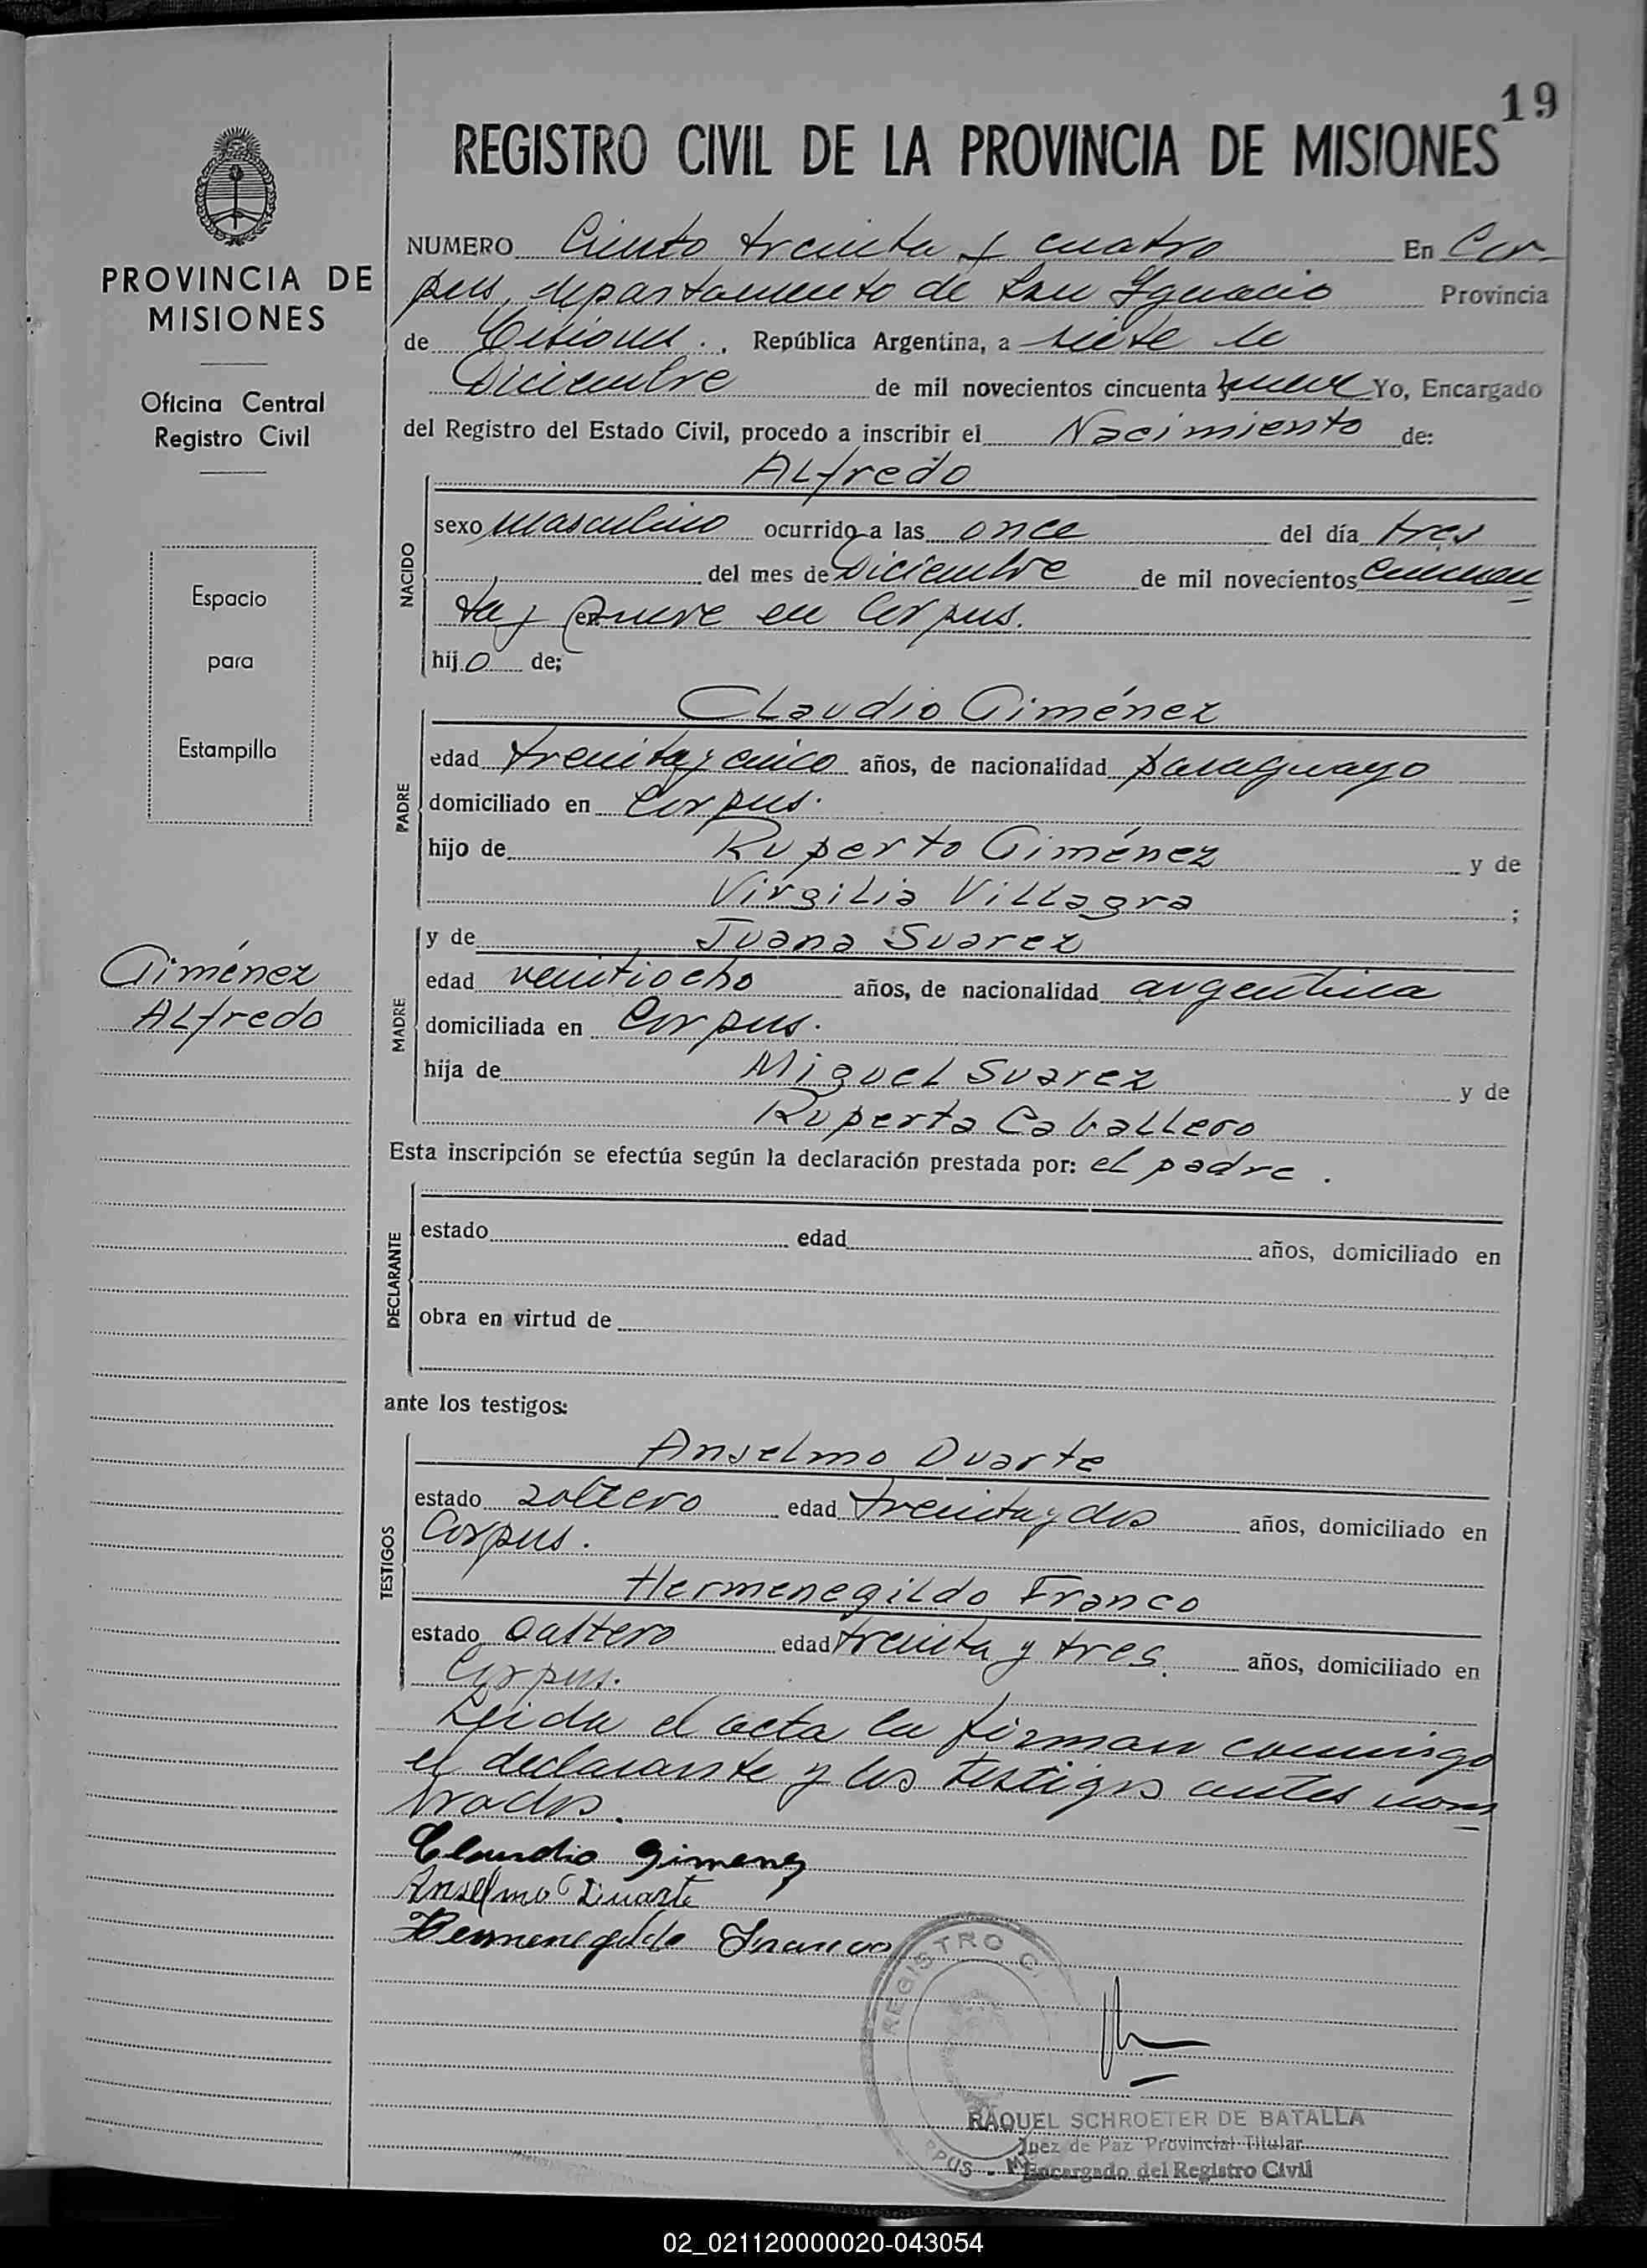 19
REGISTRO CIVIL DE LA PROVINCIA DE MISIONES
PROVINCIA DE
MISIONES
Oficina Central
Registro Civil
Espacio
para
Estampilla
Giménez
Alfredo
NUMERO Ciento treinta y cuatro En Cor
pus, departamento de San Ignacio Provincia
de Misiones. , República Argentina, a siete de
Diciembre de mil novecientos cincuenta y nueve Yo, Encargado
del Registro del Estado Civil, procedo a inscribir el Nacimiento de:
Alfredo
NACIDO
sexo masculino ocurrido a las once del día tres
del mes de Diciembre de mil novecientos cincuen
ta y nueve en Corpus.
hijo de;
Claudio Giménez
PADRE
edad treinta y cinco años, de nacionalidad paraguayo
domiciliado en Corpus.
hijo de Ruperto Giménez y de
Virgilia Villagra ;
y de Juana Suarez
MADRE
edad veintiocho años, de nacionalidad argentina
domiciliada en Corpus.
hija de Miguel Suarez y de
Ruperta Caballero
Esta inscripción se efectúa según la declaración prestada por: el padre.
DECLARANTE
estado edad años, domiciliado en
obra en virtud de
ante los testigos:
TESTIGOS
Anselmo Duarte
estado soltero edad treinta y dos años, domiciliado en
Corpus.
Hermenegildo Franco
estado soltero edad treinta y tres. años, domiciliado en
Corpus.
Leida el acta la firman conmigo
el declarante y los testigos antes nom
brados.
Claudio Gimenez
Anselmo Duarte
Hermenegildo Franco
REGISTRO CI
RPUS - M
RAQUEL SCHROETER DE BATALLA
Juez de Paz Provincial Titular
Encargado del Registro Civil
02_021120000020-043054